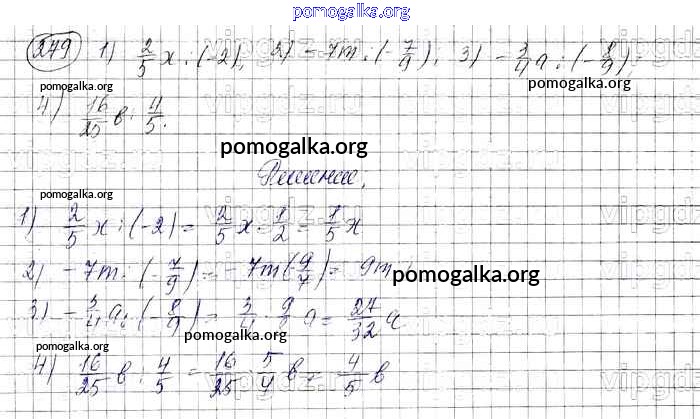 pomogalka.org
249 1) 2/5 x : (-2); 2) -7m : (-7/9); 3) -3/4 a : (-8/9);
pomogalka.org
pomogalka.org
4) 16/25 в : 4/5.
pomogalka.org
Решение.
pomogalka.org
1) 2/5 x : (-2) = 2/5 x · 1/2 = 1/5 x
2) -7m : (-7/9) = -7m (-9/7) = 9m
pomogalka.org
3) -3/4 a : (-8/9) = 3/4 · 9/8 a = 27/32 a
pomogalka.org
pomogalka.org
4) 16/25 в : 4/5 = 16/25 · 5/4 в = 4/5 в